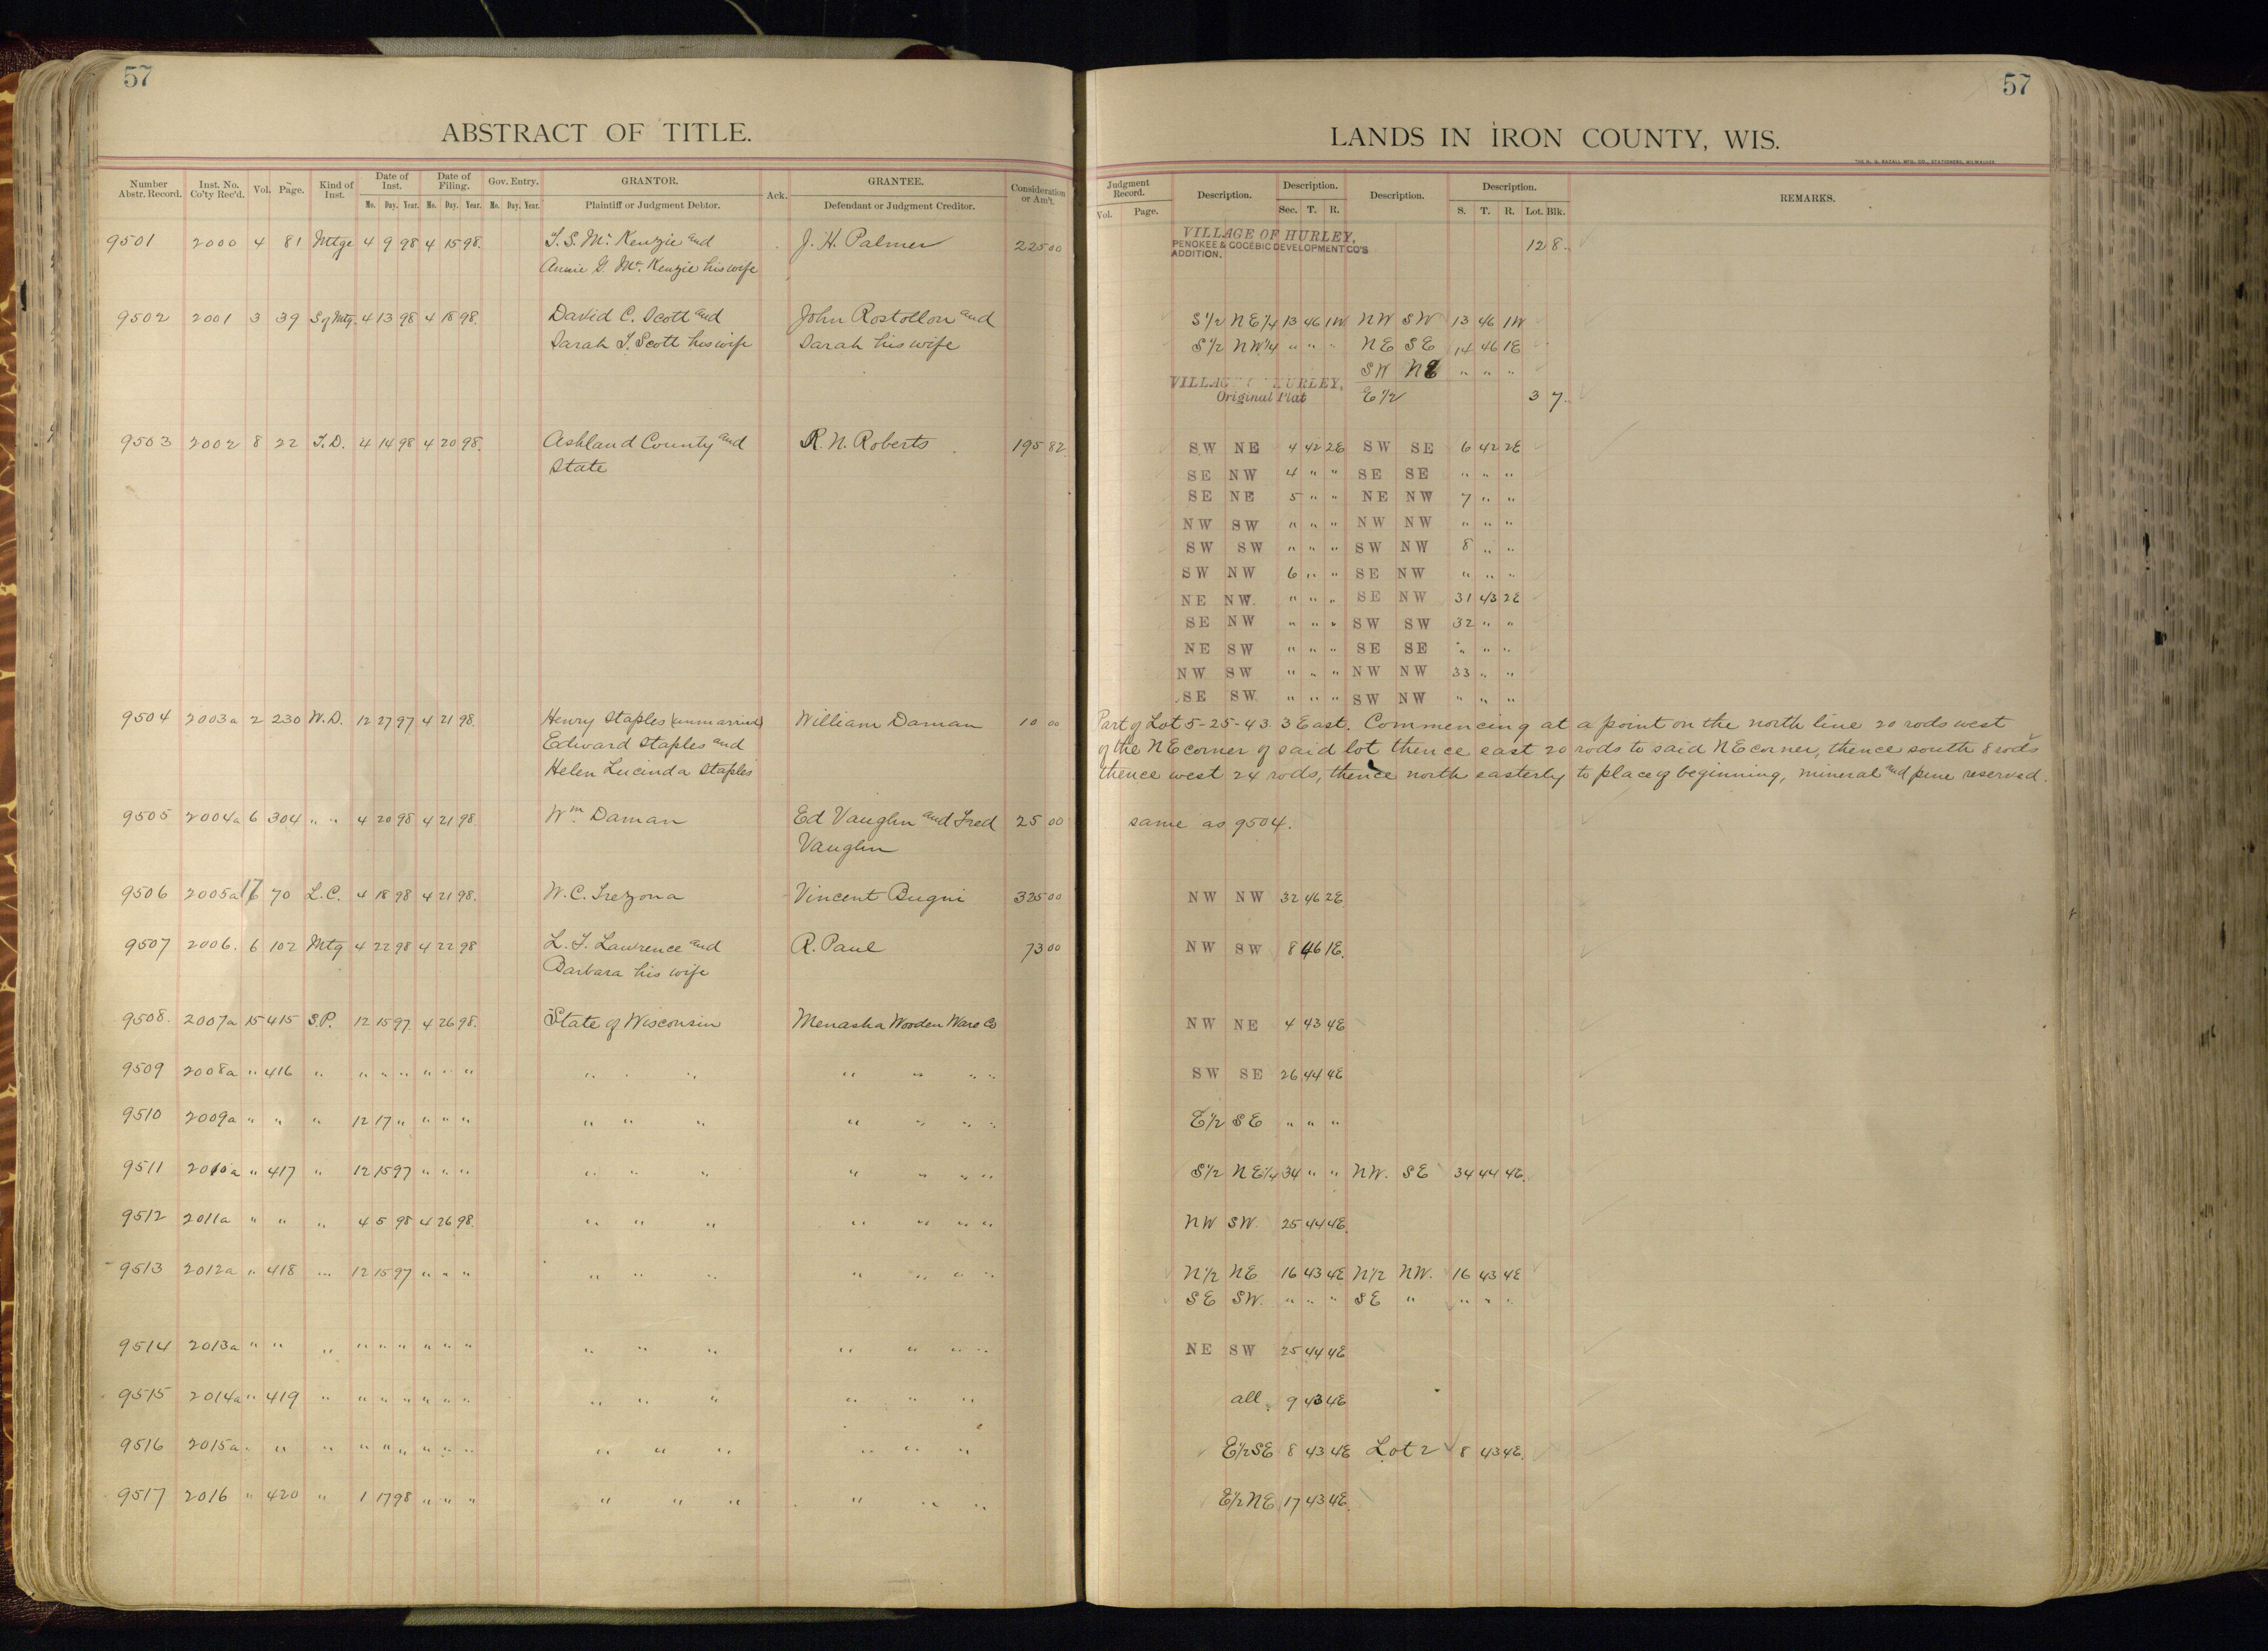 57
ABSTRACT OF TITLE.
Number Abstr. Record. Inst. No. Co'ty Rec'd. Vol. Page. Kind of Inst. Date of Inst. Mo. Day. Year. Date of Filing. Mo. Day. Year. Gov. Entry. Mo. Day. Year. GRANTOR. Plaintiff or Judgment Debtor. Ack. GRANTEE. Defendant or Judgment Creditor. Consideration or Am't.
9501 2000 4 81 Mtge 4 9 98 4 15 98. T. S. Mc Kenzie and J. H. Palmer 225 00
Annie G. Mc Kenzie his wife
9502 2001 3 39 S of Mtg. 4 13 98 4 18 98. David C. Scott and John Rostollon and
Sarah T. Scott his wife Sarah his wife
9503 2002 8 22 T.D. 4 14 98 4 20 98. Ashland County and R. N. Roberts 195 82
State
9504 2003a 2 230 W.D. 12 27 97 4 21 98. Henry Staples (unmarried) William Daman 10 00
Edward Staples and
Helen Lucinda Staples
9505 2004a 6 304 " " 4 20 98 4 21 98 Wm Daman Ed Vaughn and Fred 25 00
Vaughn
9506 2005a 17 70 L.C. 4 18 98 4 21 98. W. C. Trezona Vincent Bugni 325 00
9507 2006. 6 102 Mtg 4 22 98 4 22 98 L. T. Lawrence and R. Paul 73 00
Barbara his wife
9508. 2007a 15 415 S.P. 12 15 97 4 26 98. State of Wisconsin Menasha Wooden Ware Co
9509 2008a " 416 " " " " " " " " " " " " "
9510 2009a " " " 12 17 " " " " " " " " " " "
9511 2010a " 417 " 12 15 97 " " " " " " " " " "
9512 2011a " " " 4 5 98 4 26 98. " " " " " " "
9513 2012a " 418 " 12 15 97 " " " " " " " " " "
9514 2013a " " " " " " " " " " " " " " " "
9515 2014a " 419 " " " " " " " " " " " " "
9516 2015a " " " " " " " " " " " " " " "
9517 2016 " 420 " 1 17 98 " " " " " " " " "
57
LANDS IN IRON COUNTY, WIS.
THE H. G. RAZALL MFG. CO., STATIONERS, MILWAUKEE
Judgment Record. Vol. Page. Description. Description. Sec. T. R. Description. Description. S. T. R. Lot. Blk. REMARKS.
VILLAGE OF HURLEY, 12 8
PENOKEE & GOGEBIC DEVELOPMENT CO'S
ADDITION.
S1/2 NE1/4 13 46 1W NW SW 13 46 1W
S1/2 NW1/4 " " " NE SE 14 46 1E
SW NE " " "
VILLAGE OF HURLEY,
Original Plat E1/2 3 7
SW NE 4 42 2E SW SE 6 42 2E
SE NW 4 " " SE SE " " "
SE NE 5 " " NE NW 7 " "
NW SW " " " NW NW " " "
SW SW " " " SW NW 8 " "
SW NW 6 " " SE NW " " "
NE NW. " " " SE NW 31 43 2E
SE NW " " " SW SW 32 " "
NE SW " " " SE SE " " "
NW SW " " " NW NW 33 " "
SE SW. " " " SW NW " " "
Part of Lot 5-25-43. 3 East. Commencing at a point on the north line 20 rods west
of the NE corner of said lot thence east 20 rods to said NE corner, thence south 8 rods
thence west 24 rods, thence north easterly to place of beginning, mineral and pine reserved.
same as 9504.
NW NW 32 46 2E
NW SW 8 46 1E.
NW NE 4 43 4E
SW SE 26 44 4E
E1/2 SE " " "
S1/2 NE1/4 34 " " NW. SE 34 44 4E.
NW SW. 25 44 4E.
N1/2 NE 16 43 4E N1/2 NW. 16 43 4E
SE SW. " " " SE " " " "
NE SW 25 44 4E
all. 9 43 4E
E1/2 SE 8 43 4E Lot 2 8 43 4E.
E1/2 NE 17 43 4E.